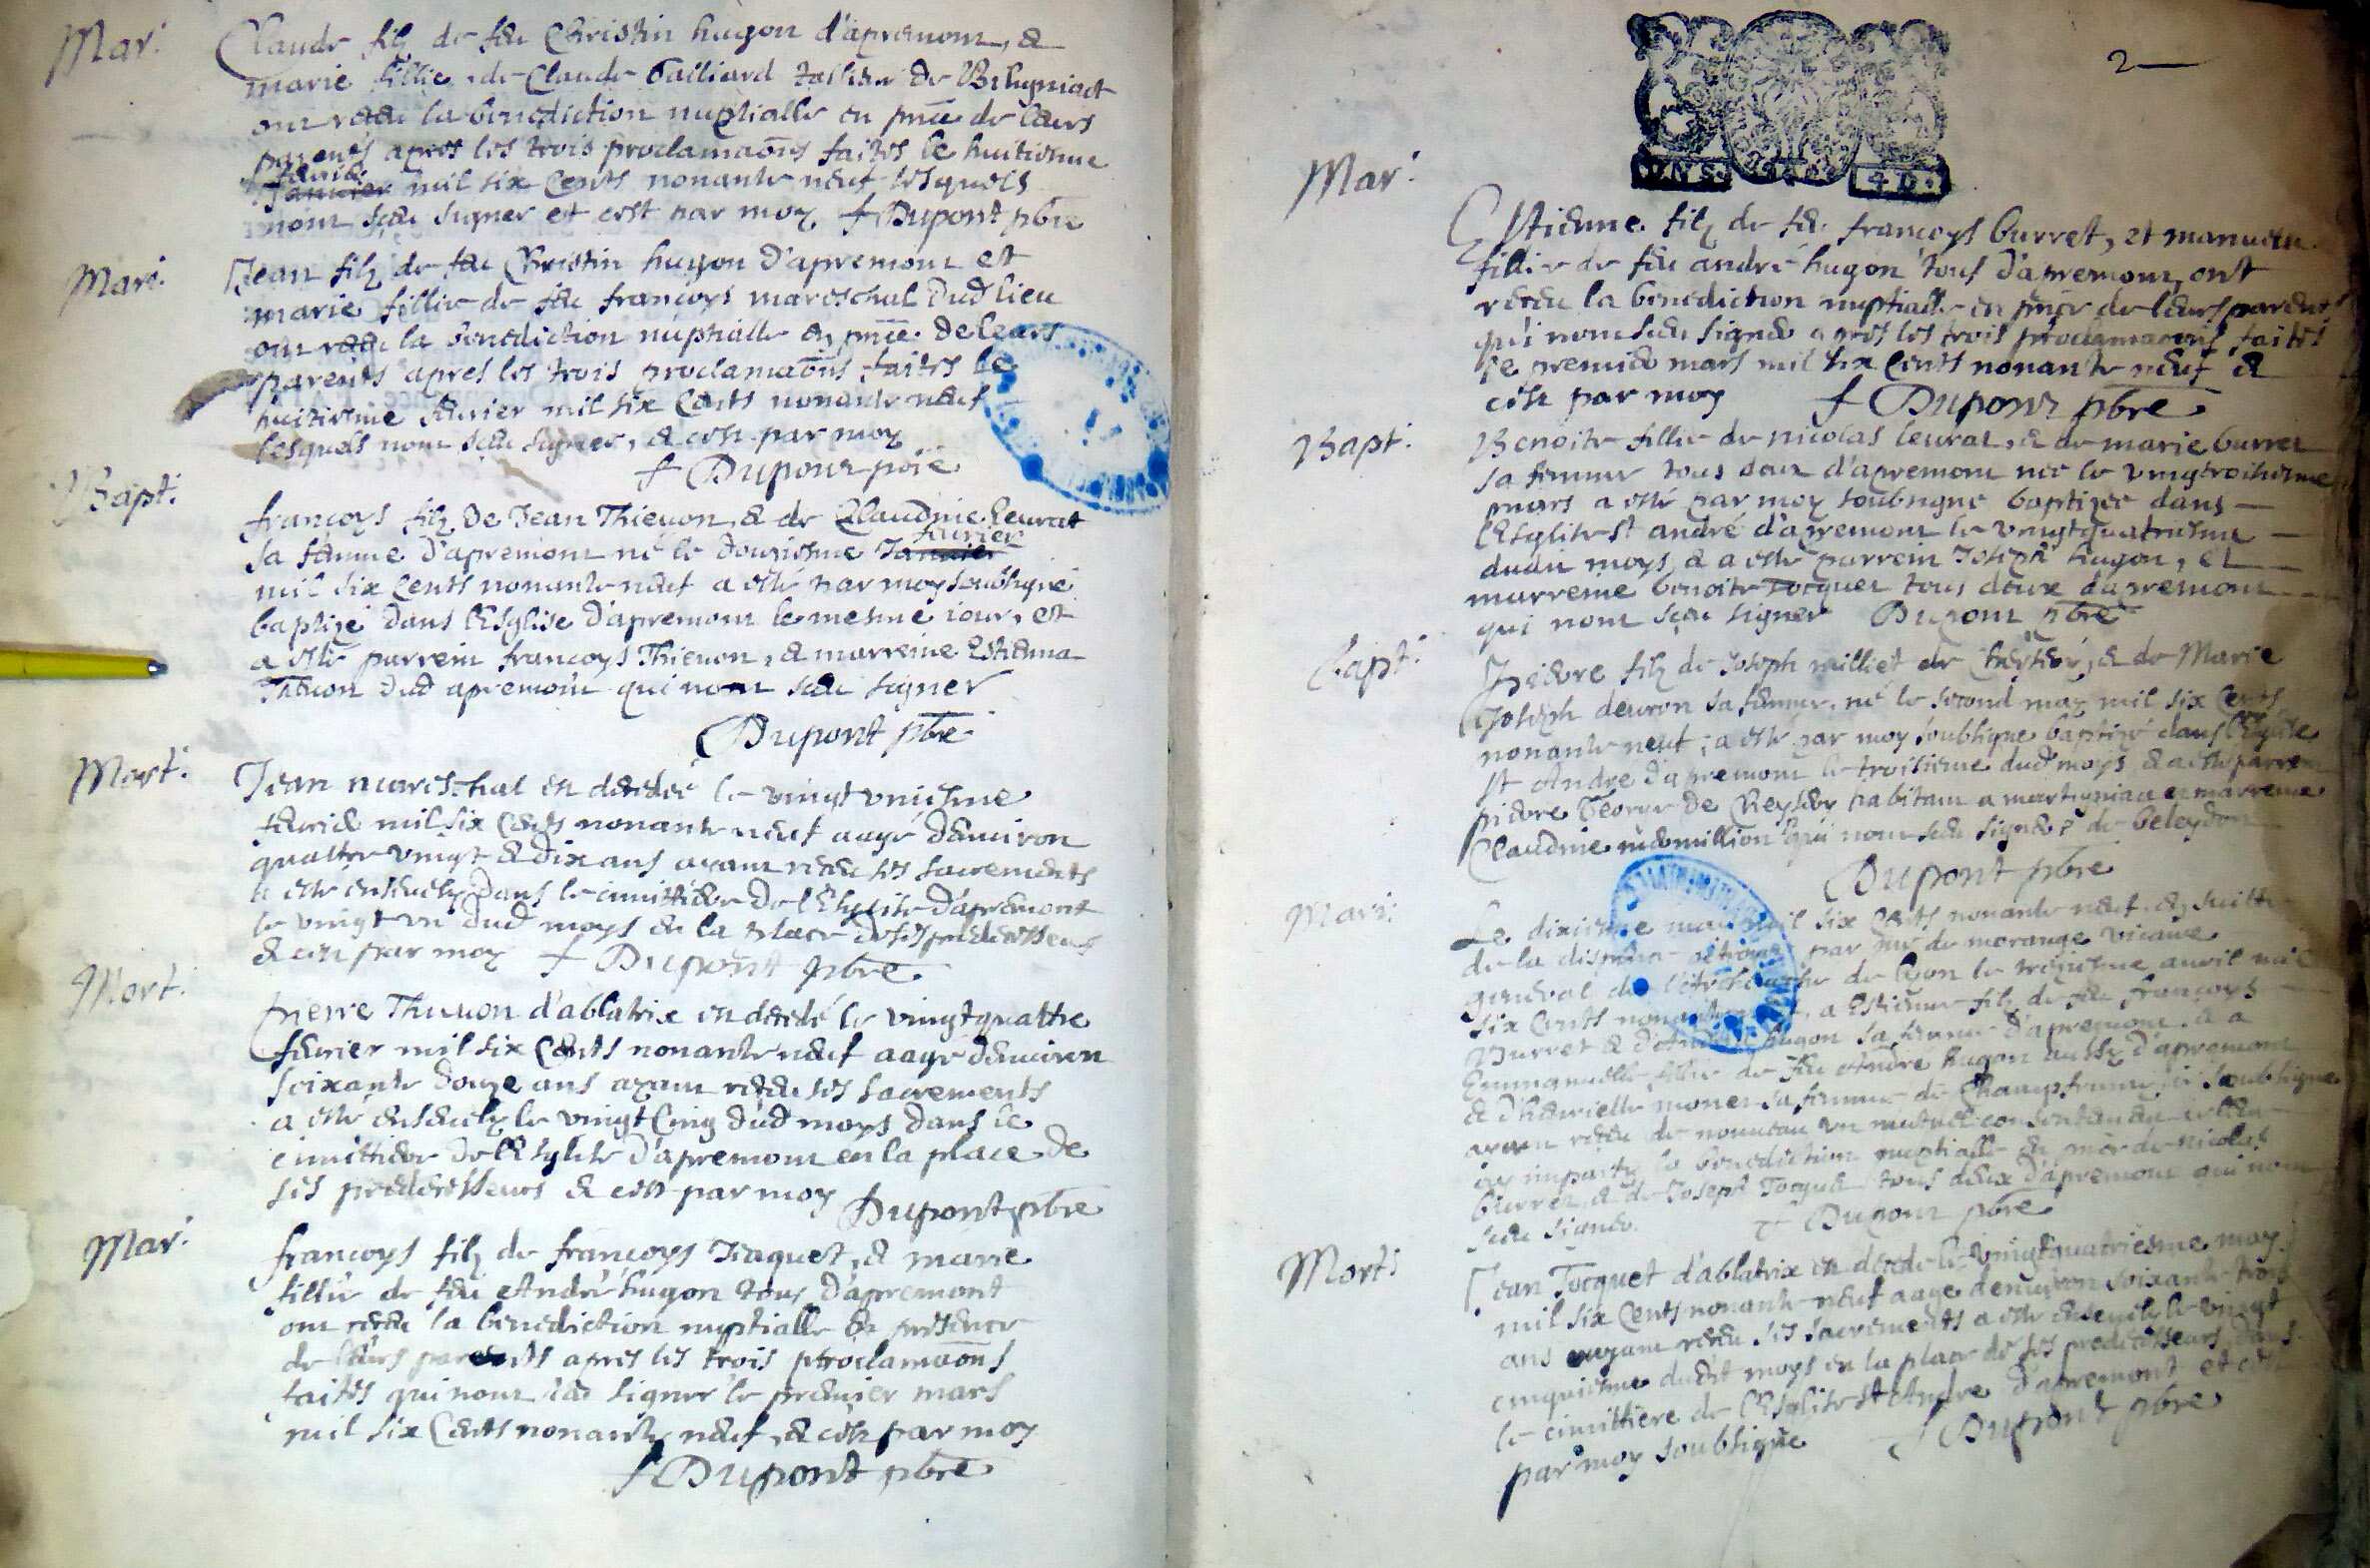 Mar.
Claude filz de feu Christin hugon d'apremont, &
marie fillie de Claude Gailliard tallieur de
ont receu la benediction nuptialle en pnce de leurs
parents apres les trois proclamaons faites le huitiesme
feurier
Januier mil six Cents nonante neuf lesquels
nont sceu signer et cest par moy Dupont pbre
Mari.
Jean filz de feu Christin hugon d'apremont et
marie fillie de feu françoys mareschal dud lieu
ont receu la benediction nuptialle en pnce de leurs
parents apres les trois proclamaons faites le
huitiesme feurier mil six Cents nonante neuf
lesquels nont sceu signer, & cest par moy
Dupont pbre
Bapt.
françoys filz De Jean Thieuon & de Claudine leurat
feurier
sa femme d'apremont né le douziesme Januier
mil six Cents nonante neuf a esté par moy soubsigné
baptizé dans l'Esglise d'apremont le mesme iour, et
a esté parrein françoys Thieuon, & marreine Estiena
Thieuon dud apremont qui nont sceu signer
Dupont pbre
Mort.
Jean mareschal est decedée le vingt vniesme
feurier mil six Cents nonante neuf aagé d'enuiron
quattre vingt & dix ans ayant receu ses sacrements
a esté enseuely dans le cimittiere de l'Esglise d'apremont
le vingt vn dud moys en la place de ses predecesseurs
& cest par moy Dupont pbre
Mort.
pierre Thieuon d'ablatrix est decedé le vingt quattre
feurier mil six Cents nonante neuf aagé d'enuiron
soixante douze ans ayant receu ses sacrements
a esté enseuely le vingt Cinq dud moys dans le
cimittiere de l'Esglise d'apremont en la place de
ses predecesseurs & cest par moy Dupont pbre
Mar.
françoys filz de françoys Jcaquet, & marie
fillie de feu André hugon tous d'apremont
ont receu la benediction nuptialle en presence
de leurs parents apres les trois proclamaons
faites qui nont sceu signer le premier mars
mil six Cents nonante neuf, & cest par moy
Dupont pbre
2
Mar.
Estienne filz de feu françoys burret, et manuelle
fillie de feu andré hugon tous d'apremont, ont
receu la benediction nuptialle en pnce de leurs parents
qui nont sceu signer apres les trois proclamaons faites
le premier mars mil six Cents nonante neuf &
cest par moy Dupont pbre
Bapt.
Benoite fillie de nicolas leurat, & de marie burret
sa femme tous deux d'apremont née le vingtroisiesme
mars a esté par moy soubsigné baptizée dans
l'Esglise st andré d'apremont le vingtquatriesme
dudit moys & a esté parrein Joseph hugon, et
marreine benoite Jocquet tous deux d'apremont
qui nont sceu signer Dupont pbre
Bapt.
Isidore filz de Joseph milliet de & de Marie
Joseph deuron sa femme, né le second may mil six Cents
nonante neuf, a esté par moy soubsigné baptizé dans l'Esglise
st André d'apremont le troisiesme dud moys & a esté parrein
pierre habitant a martigniaa & marreine
Claudine qui nont sceu signer de beleydon
Dupont pbre
Mari.
Le dixiesme may mil six Cents nonante neuf, en suitte
de la dispense par mr de morange vicaire
general de l'Archeuesché de lyon le treiziesme auril mil
six Cents nonante neuf, a Estienne filz de feu françoys
Burret & d'Andréa hugon sa femme d'apremont, & a
Emmanuelle fillie de feu André hugon aussy d'apremont
& d'huerielle monet sa femme de Champfromier ie soubsigné
ayant receu de nouueau vn mutuel consentement
ay imparty la benediction nuptialle en pnce de nicolas
burret, & de Joseph Jocquet tous deux d'apremont qui nont
sceu signer. Dupont pbre
Mort.
Jean Jocquet d'ablatrix est decedé le vingtquatriesme may
mil six Cents nonante neuf aagé d'enuiron soixante trois
ans ayant receu ses sacrements a esté enseuely le vingt
cinquiesme dudit moys en la place de ses predecesseurs dans
le cimittiere de l'Esglise st Andre d'apremont et cest
par moy soubsigné Dupont pbre